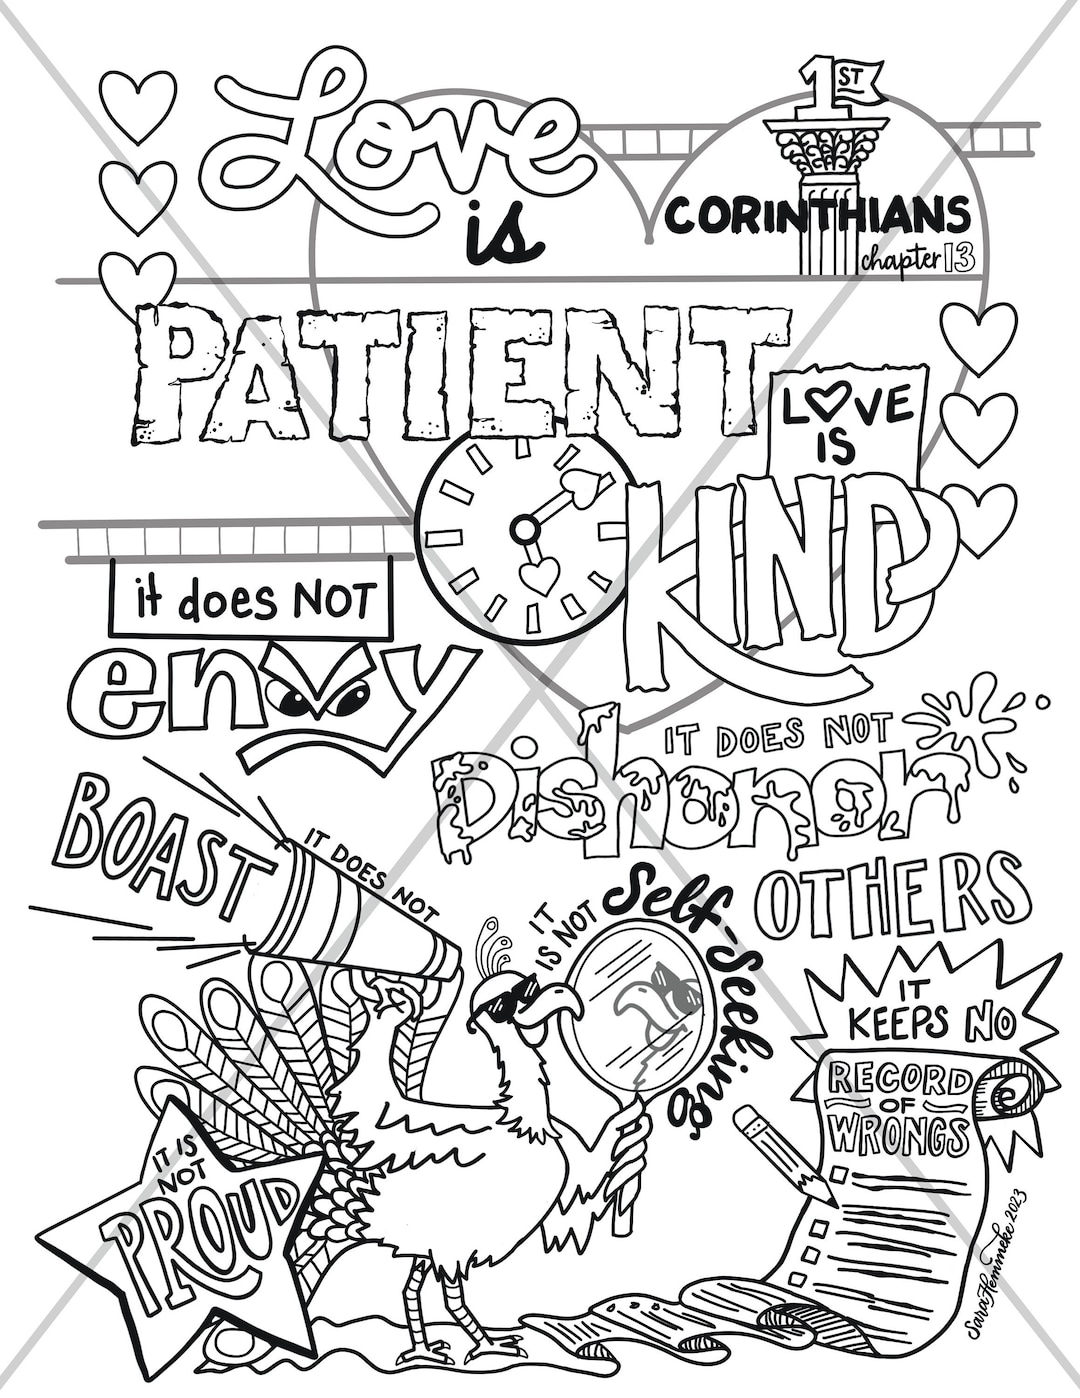 Love
is
1ST
CORINTHIANS
chapter 13
PATIENT
LOVE
IS
KIND
it does NOT
envy
IT DOES NOT
Dishonor
OTHERS
BOAST
IT DOES NOT
IT
IS NOT
Self-Seeking
IT
KEEPS NO
RECORD
OF
WRONGS
IT IS
NOT
PROUD
Sara Hemmeke 2023